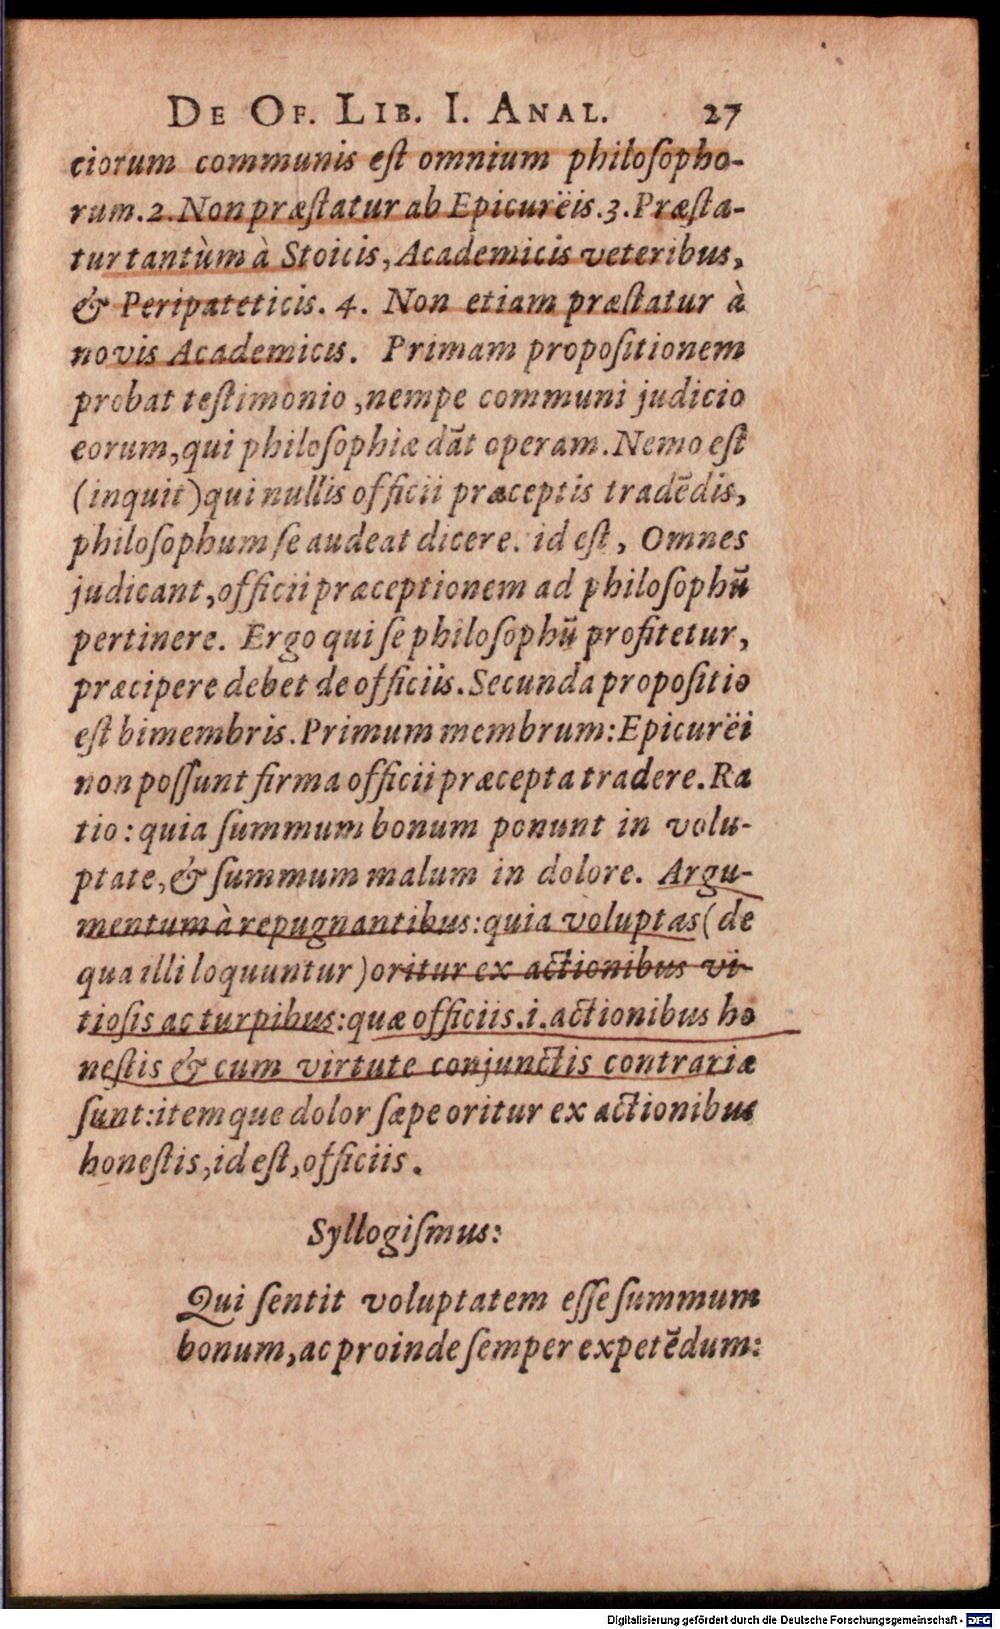 DE OF. LIB. I. ANAL. 27
ciorum communis eſt omnium philoſopho-
rum. 2. Non præſtatur ab Epicurëis. 3. Præſta-
tur tantùm à Stoicis, Academicis veteribus,
& Peripateticis. 4. Non etiam præſtatur à
novis Academicis. Primam propoſitionem
probat teſtimonio, nempe communi judicio
eorum, qui philoſophiæ dāt operam. Nemo eſt
(inquit) qui nullis officii præceptis tradēdis,
philoſophum ſe audeat dicere. id eſt, Omnes
judicant, officii præceptionem ad philoſophū
pertinere. Ergo qui ſe philoſophū profitetur,
præcipere debet de officiis. Secunda propoſitio
eſt bimembris. Primum membrum: Epicurëi
non poſſunt firma officii præcepta tradere. Ra
tio: quia ſummum bonum ponunt in volu-
ptate, & ſummum malum in dolore. Argu-
mentum à repugnantibus: quia voluptas (de
qua illi loquuntur) oritur ex actionibus vi-
tioſis ac turpibus: quæ officiis .i. actionibus ho
neſtis & cum virtute conjunctis contrariæ
ſunt: itemque dolor ſæpe oritur ex actionibus
honeſtis, id eſt, officiis.
Syllogiſmus:
Qui ſentit voluptatem eſſe ſummum
bonum, ac proinde ſemper expetēdum:
Digitalisierung gefördert durch die Deutsche Forschungsgemeinschaft - DFG